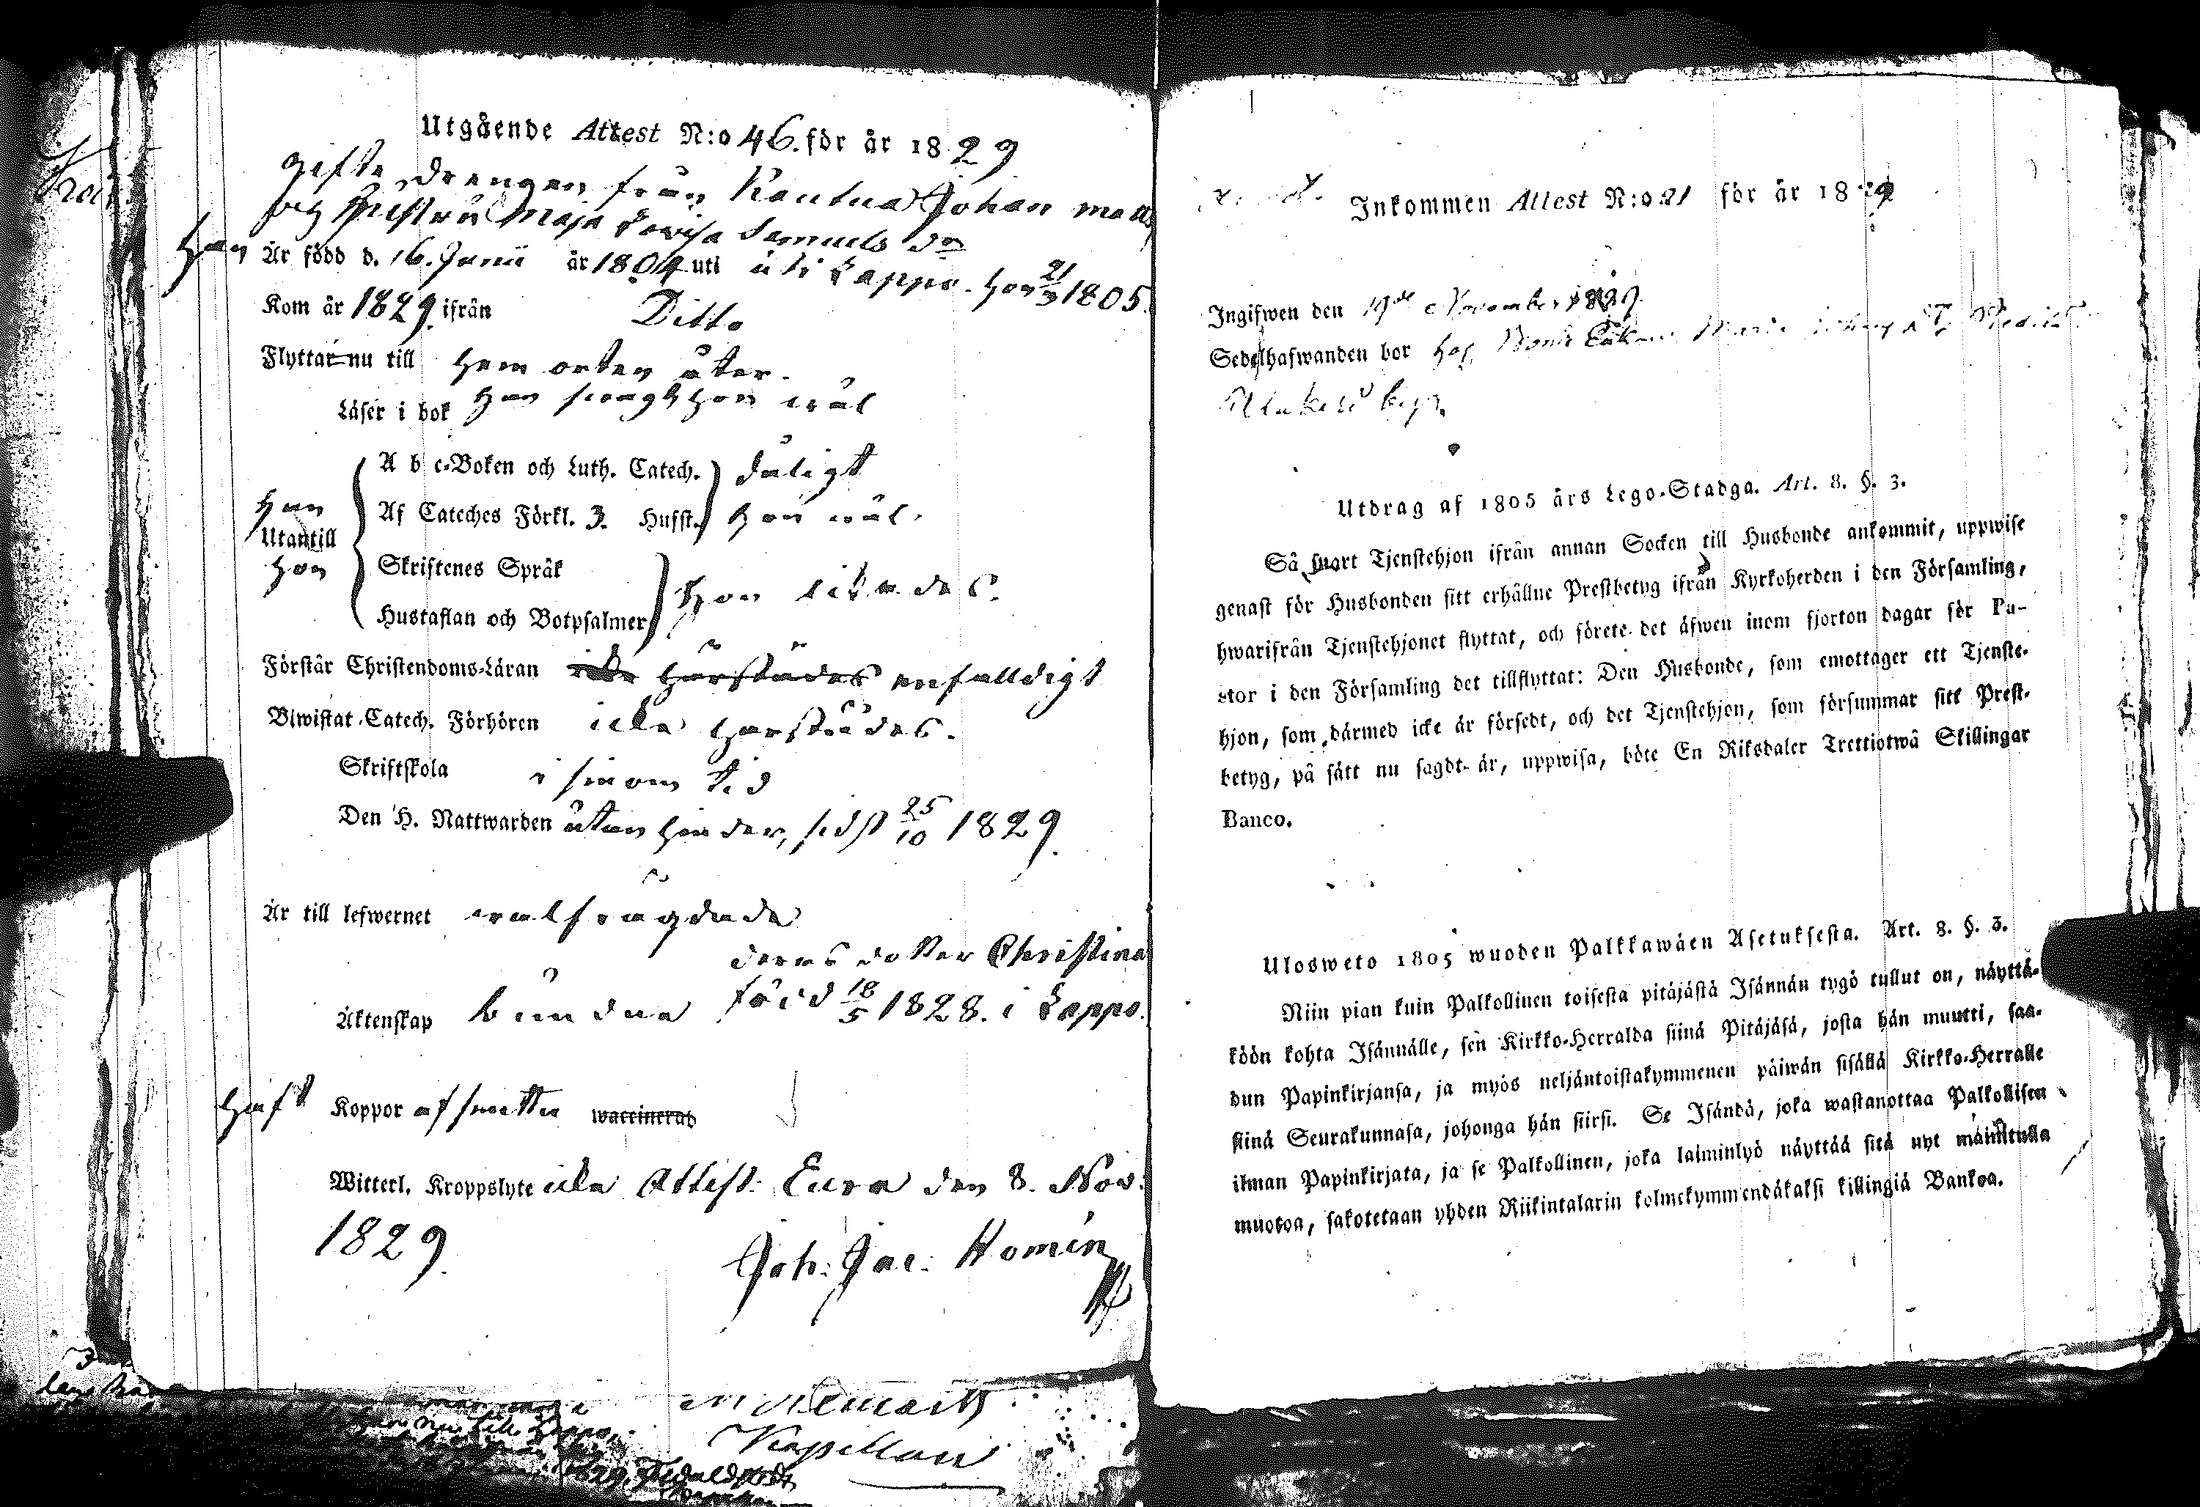 Utgående Attest N:o 46. för år 1829
gifte drengen från Kautua Johan Matts
och hustru Maja Lovisa Samuels dr
Han Är född d. 16. Junii år 1804 uti uti Lappo. hon 21/3 1805.
Kom år 1829. ifrån Ditto
Flyttar nu till hem orten åter.
Läser i bok han svagt hon wäl
A b c-Boken och Luth. Catech. dåligt
Han
Af Cateches Förkl. 3. Husst. hon wäl.
Utantill
Skriftenes Språk
hon
hon likaledes.
Hustaflan och Botpsalmer
Förstår Christendoms-Läran icke härstädes enfalldigt
Biwistat Catech. Förhören icke härstädes.
Skriftskola i sinom tid
Den H. Nattwarden utan hinder, sidst 25/10 1829.
Är till lefwernet wälfrägdade
deras dotter Christina
Äktenskap bundne född 18/5 1828. i Lappo.
Haft Koppor afsmitta waccinerad
Witterl. Kroppslyte icke Attest. Eura den 8. Nov:
1829. Joh: Jac: Homén
Kapellan
Inkommen Attest N:o 21 för år 1829
Ingifwen den 19de November 1829.
Sedelhafwanden bor hos
Utdrag af 1805 års Lego-Stadga. Art. 8. §. 3.
Så snart Tjenstehjon ifrån annan Socken till Husbonde ankommit, uppwise
genast för Husbonden sitt erhållne Prestbetyg ifrån Kyrkoherden i den Församling,
hwarifrån Tjenstehjonet flyttat, och förete det äfwen inom fjorton dagar för Pa-
stor i den Församling det tillflyttat: Den Husbonde, som emottager ett Tjenste-
hjon, som därmed icke är försedt, och det Tjenstehjon, som försummar sitt Prest-
betyg, på sätt nu sagdt är, uppwisa, böte En Riksdaler Trettiotwå Skillingar
Banco.
Ulosweto 1805 wuoden Palkkawäen Asetuksesta. Art. 8. §. 3.
Niin pian kuin Palkollinen toisesta pitäjästä Isännän tygö tullut on, näyttä-
köön kohta Isännälle, sen Kirkko-Herralda siinä Pitäjäsä, josta hän muutti, saa-
dun Papinkirjansa, ja myös neljäntoistakymmenen päiwän sisällä Kirkko-Herralle
siinä Seurakunnasa, johonga hän siirsi. Se Isändä, joka wastanottaa Palkollisen
ilman Papinkirjata, ja se Palkollinen, joka laiminlyö näyttää sitä nyt mainitulla
muotoa, sakotetaan yhden Riikintalarin kolmekymmendäkaksi killingiä Bankoa.